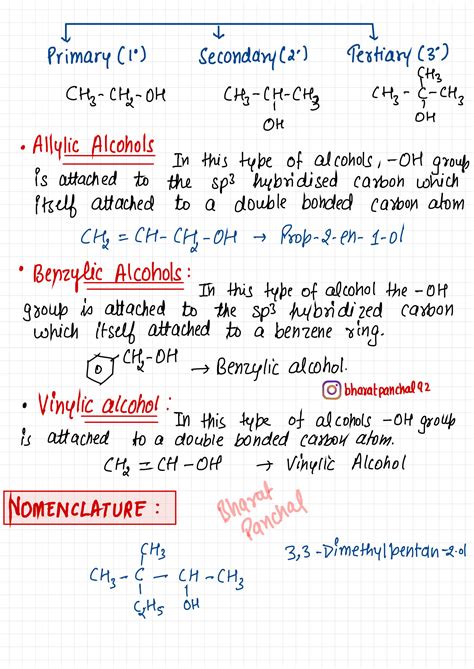 Primary (1°) Secondary (2°) Tertiary (3°)
CH₃
CH₃-CH₂-OH CH₃-CH-CH₃ CH₃-C-CH₃
OH OH
• Allylic Alcohols In this type of alcohols, -OH group
is attached to the sp³ hybridised carbon which
itself attached to a double bonded carbon atom
CH₂ = CH-CH₂-OH → Prop-2-en-1-ol
• Benzylic Alcohols: In this type of alcohol the -OH
group is attached to the sp³ hybridized carbon
which itself attached to a benzene ring.
CH₂-OH → Benzylic alcohol.
bharatpanchal92
• Vinylic alcohol: In this type of alcohols -OH group
is attached to a double bonded carbon atom.
CH₂ = CH-OH → Vinylic Alcohol
NOMENCLATURE:
Bharat
Panchal
CH₃ 3,3-Dimethylpentan-2-ol
CH₃-C-CH-CH₃
C₂H₅ OH